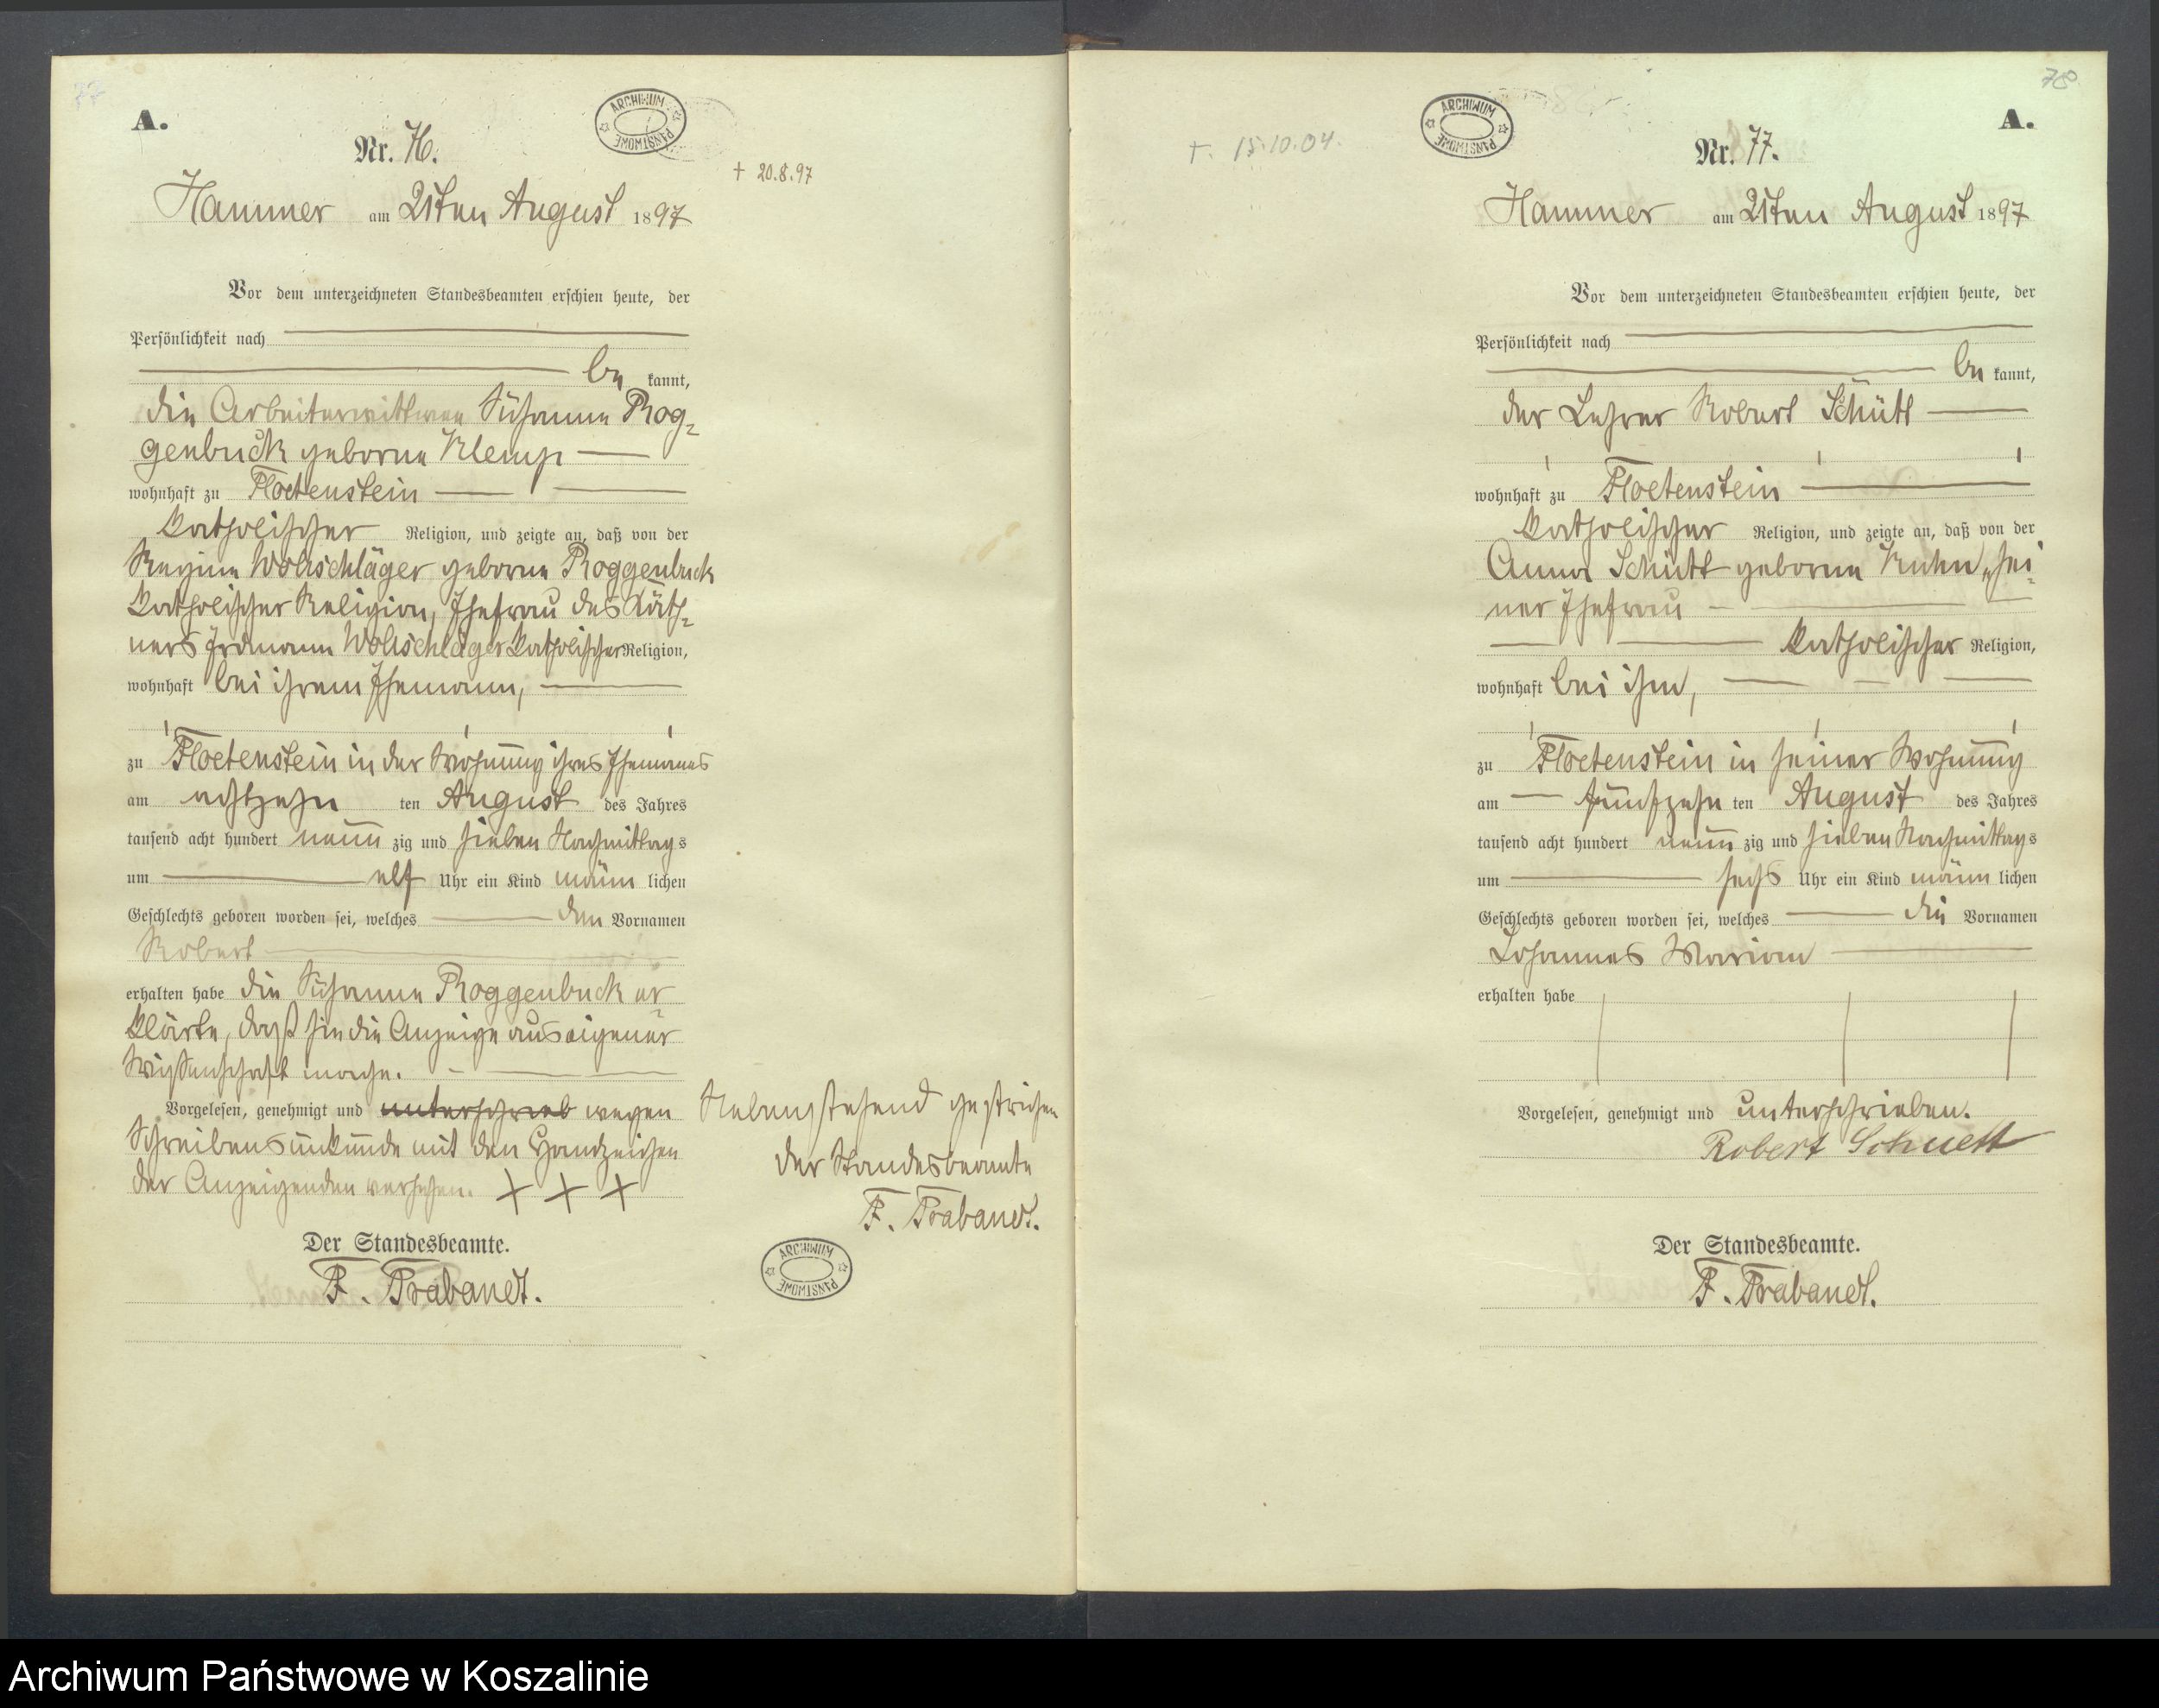 77
A.
ARCHIWUM PAŃSTWOWE
Nr. 76.
+ 20.8.97
Hammer am 21ten August 1897
Vor dem unterzeichneten Standesbeamten erschien heute, der
Persönlichkeit nach
be kannt,
die Arbeiterwittwee Susanne Rog-
genbuck geborne Klemp
wohnhaft zu Floetenstein
katholischer Religion, und zeigte an, daß von der
Regine Wollschläger geborne Roggenbuck
katholischer Religion, Ehefrau des Käth-
ners Erdmann Wollschläger katholischer Religion,
wohnhaft bei ihrem Ehemann,
zu Floetenstein in der Wohnung ihres Ehemannes
am achtzehn ten August des Jahres
tausend acht hundert neun zig und sieben Nachmittags
um elf Uhr ein Kind männ lichen
Geschlechts geboren worden sei, welches den Vornamen
Robert
erhalten habe die Susanne Roggenbuck er-
klärte, daß sie die Anzeige aus eigener
Wissenschaft mache.
Vorgelesen, genehmigt und unterschrieb wegen
Schreibensunkunde mit den Handzeichen
der Anzeigenden versehen. + + +
Nebenstehend gestrichen
Der Standesbeamte
F. Trabandt.
ARCHIWUM PAŃSTWOWE
Der Standesbeamte.
F. Trabandt.
78
A.
ARCHIWUM PAŃSTWOWE
+. 15.10.04.
Nr. 77.
Hammer am 21ten August 1897
Vor dem unterzeichneten Standesbeamten erschien heute, der
Persönlichkeit nach
be kannt,
der Lehrer Robert Schütt
wohnhaft zu Floetenstein
katholischer Religion, und zeigte an, daß von der
Anna Schütt geborne Kuhn, sei-
ner Ehefrau
katholischer Religion,
wohnhaft bei ihm,
zu Floetenstein in seiner Wohnung
am fünfzehn ten August des Jahres
tausend acht hundert neun zig und sieben Nachmittags
um sechs Uhr ein Kind männ lichen
Geschlechts geboren worden sei, welches die Vornamen
Johannes Marian
erhalten habe
Vorgelesen, genehmigt und unterschrieben.
Robert Schuett
Der Standesbeamte.
F. Trabandt.
Archiwum Państwowe w Koszalinie